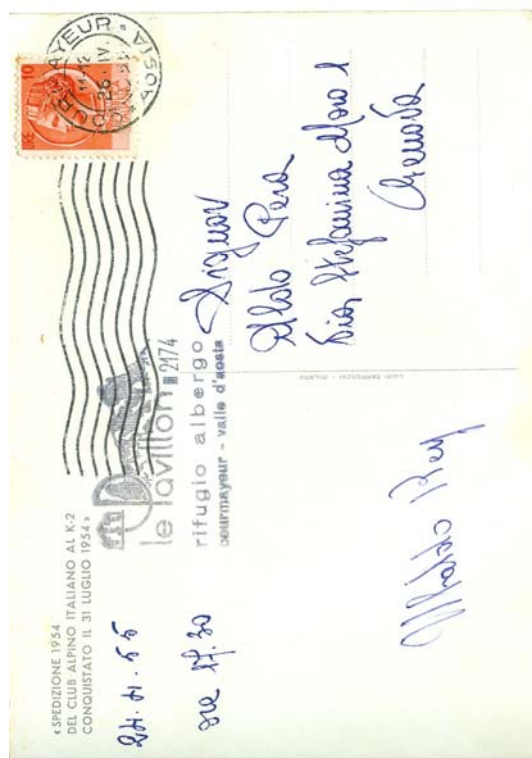 «SPEDIZIONE 1954
DEL CLUB ALPINO ITALIANO AL K-2
CONQUISTATO IL 31 LUGLIO 1954»
24.4.55
ore 17.30
le Pavillon m 2174
rifugio albergo
courmayeur - valle d'aosta
AOSTA
26 IV
Signor
Aldo Pera
Via Stefanina Moro 1
Genova
Rey